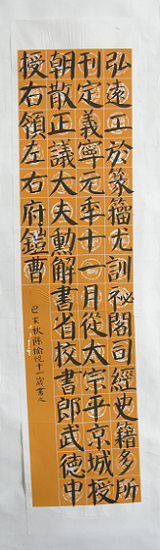 弘遠工於篆籀尤訓祕閣司經史籍多所
刊定義寧元年十一月從太宗平京城授
朝散正議大夫勳解書省校書郎武德中
授右領左右府鎧曹
己亥秋十一歲書之